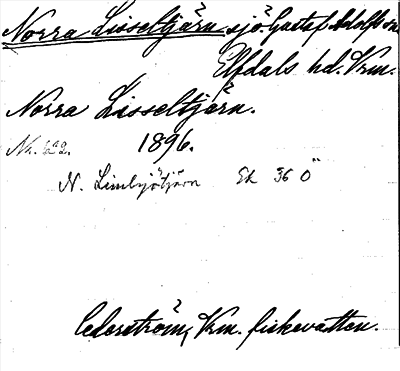 Norra Lisseltjärn, sjö. Gustaf Adolfs sn.
Elfdals hd. Vrm.
Norra Lisseltjärn.
1896.
N. Limsjötjärn Ek 36 Ö
Cederström, Vrm. fiskevatten.